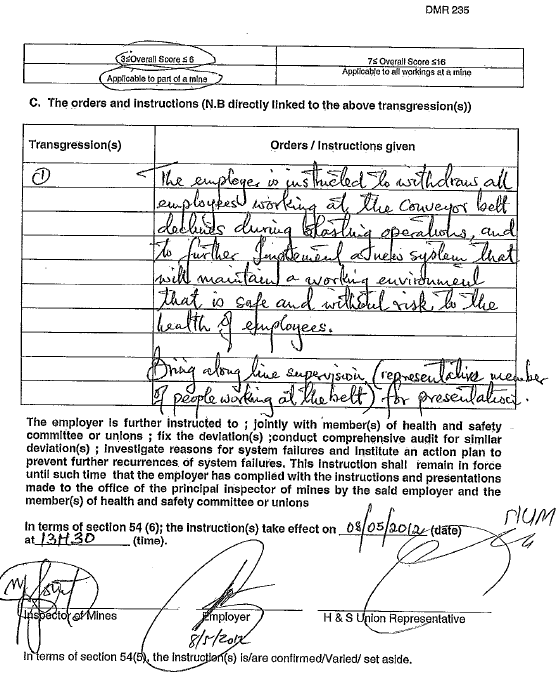 DMR 235
3≤Overall Score ≤ 6
7≤ Overall Score ≤16
Applicable to part of a mine
Applicable to all workings at a mine
C. The orders and instructions (N.B directly linked to the above transgression(s))
Transgression(s)
Orders / Instructions given
①
The employer is instructed to withdraw all
employees working at the Conveyor belt
declines during blasting operations, and
to further implement a new system that
will maintain a working environment
that is safe and without risk to the
health of employees.
Bring along line supervision (representative member
of people working at the belt) for presentation.
The employer is further instructed to ; jointly with member(s) of health and safety
committee or unions ; fix the deviation(s) ;conduct comprehensive audit for similar
deviation(s) ; investigate reasons for system failures and institute an action plan to
prevent further recurrences of system failures. This instruction shall remain in force
until such time that the employer has complied with the instructions and presentations
made to the office of the principal inspector of mines by the said employer and the
member(s) of health and safety committee or unions
NUM
In terms of section 54 (6); the instruction(s) take effect on 08/05/2012 (date)
at 13H30 (time).
Inspector of Mines
Employer
H & S Union Representative
8/5/2012
In terms of section 54(5), the instruction(s) is/are confirmed/Varied/ set aside.